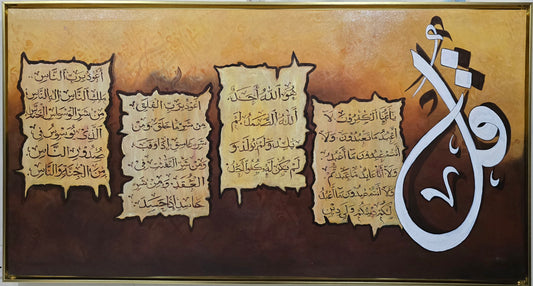 قل
يا أيها الكفرون لا
أعبد ما تعبدون ولا
أنتم عبدون ما أعبد
ولا أنا عابد ما عبدتم
ولا أنتم عبدون ما أعبد
لكم دينكم ولي دين
هو الله أحد
الله الصمد لم
يلد ولم يولد و
لم يكن له كفوا أحد
أعوذ برب الفلق
من شر ما خلق ومن
شر غاسق إذا وقب
ومن شر النفثت في
العقد ومن شر
حاسد إذا حسد
أعوذ برب الناس
ملك الناس إله الناس
من شر الوسواس الخناس
الذي يوسوس في
صدور الناس
من الجنة والناس